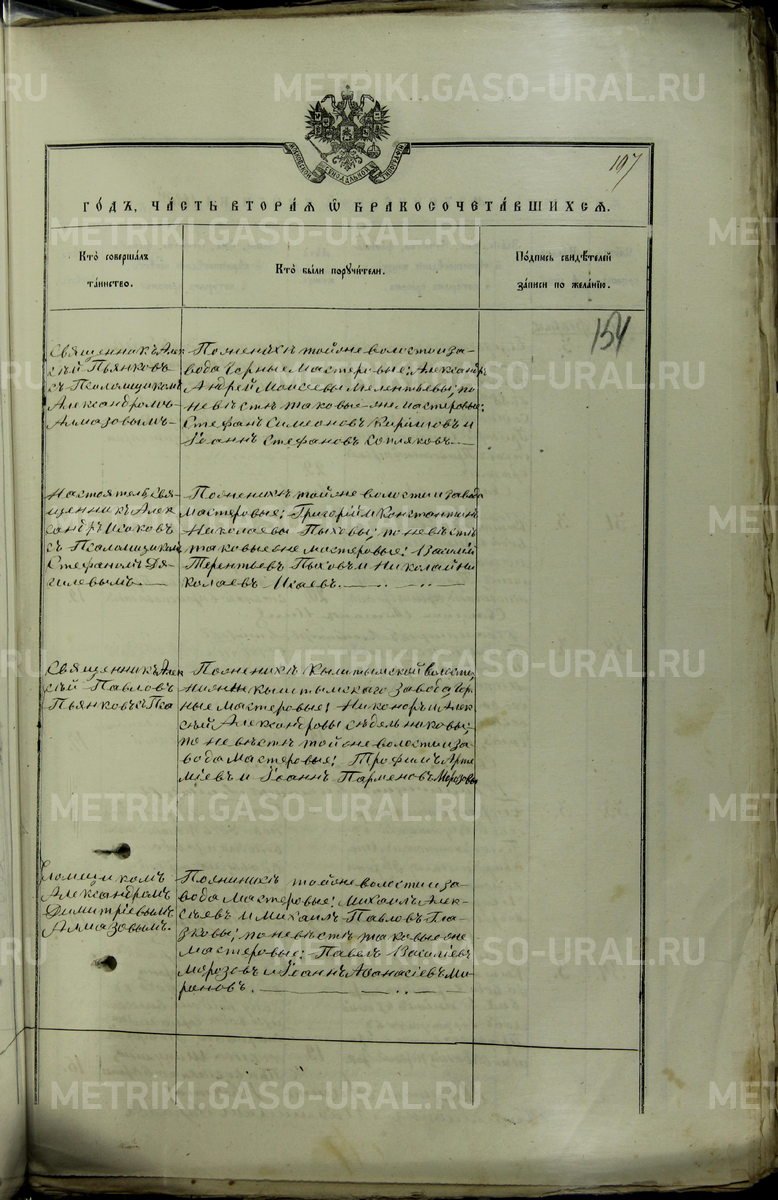 METRIKI.GASO-URAL.RU
МОСКОВСКОЙ СѴНОДАЛЬНОЙ ТИПОГРАФІИ
197
ГО́ДЪ, ЧА́СТЬ ВТОРА́Я Ѽ БРАКОСОЧЕТА́ВШИХСЯ.
Кто̀ соверша́лъ
та́инство.
Кто̀ бы́ли порꙋчи́тели.
По́дпись свидѣ́телей
за́писи по жела́нію.
154
Священникъ Алек
сѣй Пьянковъ
съ Псаломщикомъ
Александромъ
Алмазовымъ
По женихѣ той оне волости и за-
вода Горные Мастеровые: Александръ
Андрей Моисеевы Мелентьевы; по
невѣстѣ таковые-оне мастеровые:
Стефанъ Симеоновъ и
Іоаннъ Стефановъ
Настоятель Свя-
щенникъ Алек
сандръ Исаковъ
съ Псаломщикомъ
Стефаномъ Дя-
гилевымъ
По женихѣ той оне волости и завода
Мастеровые: Григорій и Константинъ
Николаевы Пыховы; по невѣстѣ
таковые оне мастеровые: Василій
Терентьевъ Пыховъ и Николай Ни
колаевъ Исаевъ.
Священникъ Алек
сѣй Павловъ
Пьянковъ съ Пса
По женихѣ Кыштымской волости,
Нижнекыштымскаго завода Гор
ные Мастеровые: Никоноръ и Алек
сѣй Александровы Сѣдельниковы;
по невѣстѣ той оне волости и за-
вода Мастеровые: Трофимъ Арте
міевъ и Іоаннъ Парменовъ Морозовы
ломщикомъ
Александромъ
Димитріевымъ
Алмазовымъ.
По женихѣ той оне волости и за-
вода Мастеровые: Михаилъ Алек-
сѣевъ и Михаилъ Павловъ Гла-
зковы; по невѣстѣ таковые оне
мастеровые: Павелъ Василіевъ
Морозовъ и Іоаннъ Аѳанасіевъ Ми-
роновъ.